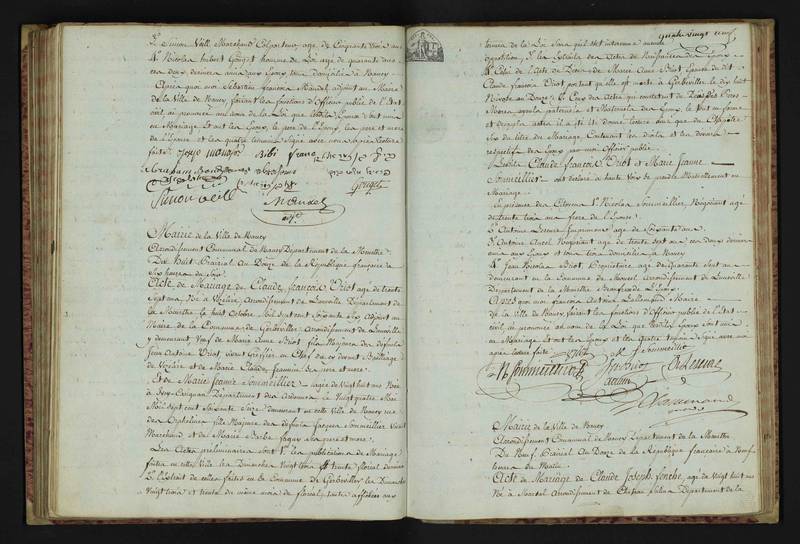 3° Simon Veille Marchand Colporteur, agé de Cinquante trois ans
4° Nicolas hubert Gouget homme de Loi agé de quarante deux
ans ces derniers amis aux Epoux tous Domiciliés à Nancy
Après quoi moi Sébastien francois Mandel adjoint au Maire
de la Ville de Nancy, faisant les fonctions d'officier public de l'Etat
civil, ai prononcé au nom de la Loi que lesdits Epoux sont unis
en Mariage Et ont les Epoux, le pere de l'Epoux les pere et mere
de l'Epouse et les quatre témoins Signé avec nous après lecture
faite
Simon veile
Mandel
Gouget
Mairie de la Ville de Nancy
Arrondissement Communal de Nancy Département de la Meurthe
Du Huit Prairial An Douze de la République française à
Six heures du soir
Acte de Mariage de Claude françois Driot agé de trente
Sept ans Né à Vezelise Arrondissement de Département de
la Meurthe le huit Octobre Mil Sept cent Soixante Six Adjoint au
Maire de la Commune de Gerbéviller Arrondissement de Lunéville
y demeurant Veuf de Marie Anne Briot fils Majeur des défunts
Jean Antoine Driot, vivant Greffier en Chef du cy devant Bailliage
de Vezelise et de Marie Claude ses pere et mere
Et de Marie Jeanne Sommeillier agée de Vingt huit ans Née
à Département des Ardennes le Vingt quatre Mai
Mil Sept cent Soixante Seize demeurant en cette Ville de Nancy rue
des Orphelines fille Majeure des défunts Jacques Sommeillier Vivant
Marchand et de Marie Barbe Jaques Ses pere et mere
Les Actes preliminaires Sont 1° Les publications de Mariage
faites en cette Ville les Dimanches Vingt trois et trente floréal dernier
2° L'Extrait de celles faites en la Commune de Gerbéviller les Dimanches
Vingt trois et trente du même mois de floréal, toutes affichées aux
quatre vingt cinq
termes de la Loi Sans qu'il soit intervenu aucune
opposition, 3° Les Extraits des Actes de Naissances des Epoux
4° Celui de l'Acte de Décès de Marie Anne Briot Epouse dudit
Claude francois Driot portant qu'elle est morte à Gerbéviller le dix huit
Nivôse an Douze 5° Ceux des Actes qui constatent des Décès des Peres
Meres, ayeuls paternels et Maternels des Epoux, le tout en forme
et desquels actes il a été donné lecture ainsi que du Chapitre
Six du titre du Mariage, Contenant les droits et les devoirs
respectifs des Epoux par moi officier Public
Lesdits Claude françois Driot et Marie Jeanne
Sommeillier ont déclaré à haute Voix Se prendre Mutuellement en
Mariage
En présence des Citoyens 1° Nicolas Sommeillier, Négociant agé
de trente trois ans frere de l'Epouse
2° Antoine Leseure Imprimeur agé de Soixante ans
3° Antoine Négociant agé de trente Sept ans ces deux derniers
amis aux Epoux et tous trois domiciliés à Nancy
4° Jean Nicolas Driot, Propriétaire, agé de quarante Sept ans
demeurant en la Commune de Arrondissement de Lunéville
Département de la Meurthe de l'Epoux
Après quoi moi francois Antoine Lallemand Maire
de la Ville de Nancy, faisant les fonctions d'officier public de l'Etat
civil, ai prononcé au nom de la Loi que lesdits Epoux sont unis
en Mariage Et ont les Epoux et les quatre témoins Signé avec nous
après lecture faite
Lallemand
Mairie de la Ville de Nancy
Arrondissement Communal de Nancy Département de la Meurthe
Du Neuf Prairial An Douze de la République française à Neuf
heures du Matin
Acte de Mariage de Claude Joseph agé de Vingt huit ans
Né à Arrondissement de Château Salins Département de la